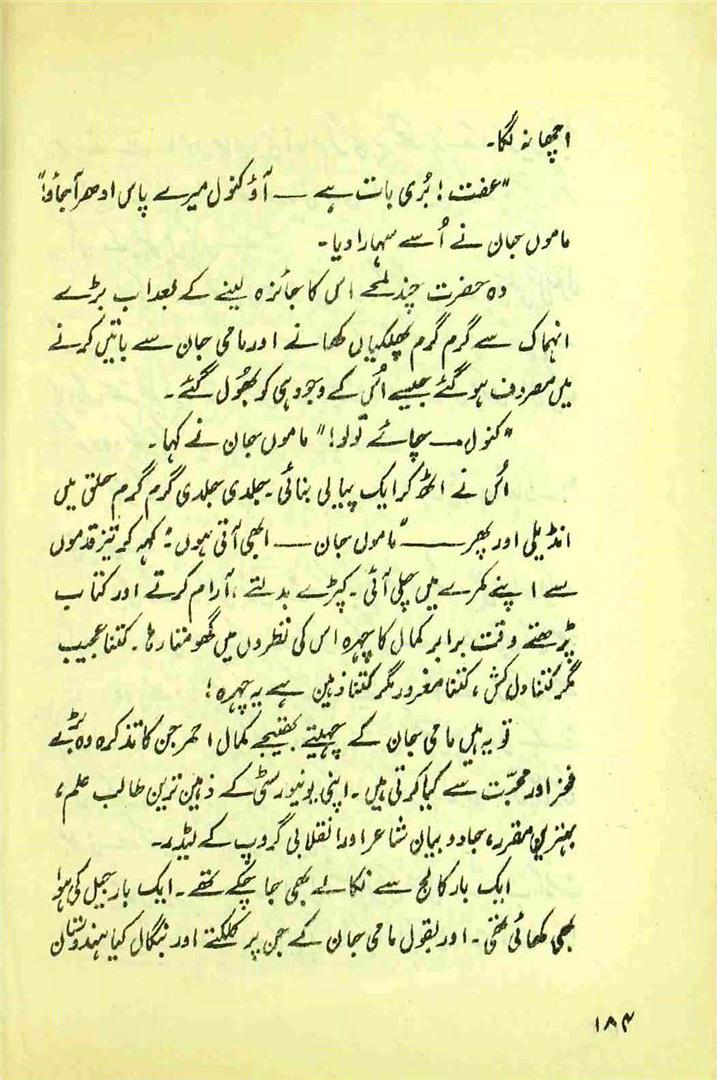 اچھا نہ لگا۔
"عفت! بُری بات ہے — آؤ کنول میرے پاس ادھر آ جاؤ!"
ماموں جان نے اُسے سہارا دیا۔
وہ حضرت چند لمحے اس کا جائزہ لینے کے بعد اب بڑے
انہماک سے گرم گرم پھلکیاں کھانے اور مامی جان سے باتیں کرنے
میں مصروف ہو گئے جیسے اُس کے وجود ہی کو بھُول گئے۔
"کنول — چائے تو لو!" ماموں جان نے کہا۔
اُس نے اٹھ کر ایک پیالی بنائی۔ جلدی جلدی گرم گرم حلق میں
انڈیلی اور پھر — "ماموں جان — ابھی آتی ہوں" کہہ کر تیز قدموں
سے اپنے کمرے میں چلی آئی۔ کپڑے بدلتے، آرام کرتے اور کتاب
پڑھتے وقت برابر کمال کا چہرہ اس کی نظروں میں گھومتا رہا۔ کتنا عجیب
مگر کتنا دل کش، کتنا مغرور مگر کتنا ذہین ہے یہ چہرہ!
تو یہ ہیں مامی جان کے چہیتے بھتیجے کمال احمر جن کا تذکرہ وہ بڑے
فخر اور محبّت سے کیا کرتی ہیں۔ اپنی یونیورسٹی کے ذہین ترین طالب علم،
بہترین مقرر، جادو بیان شاعر اور انقلابی گروپ کے لیڈر۔
ایک بار کالج سے نکالے بھی جا چکے تھے۔ ایک بار جیل کی ہوا
بھی کھائی تھی۔ اور بقول مامی جان کے جن پر کلکتے اور بنگال کیا ہندوستان
۱۸۴